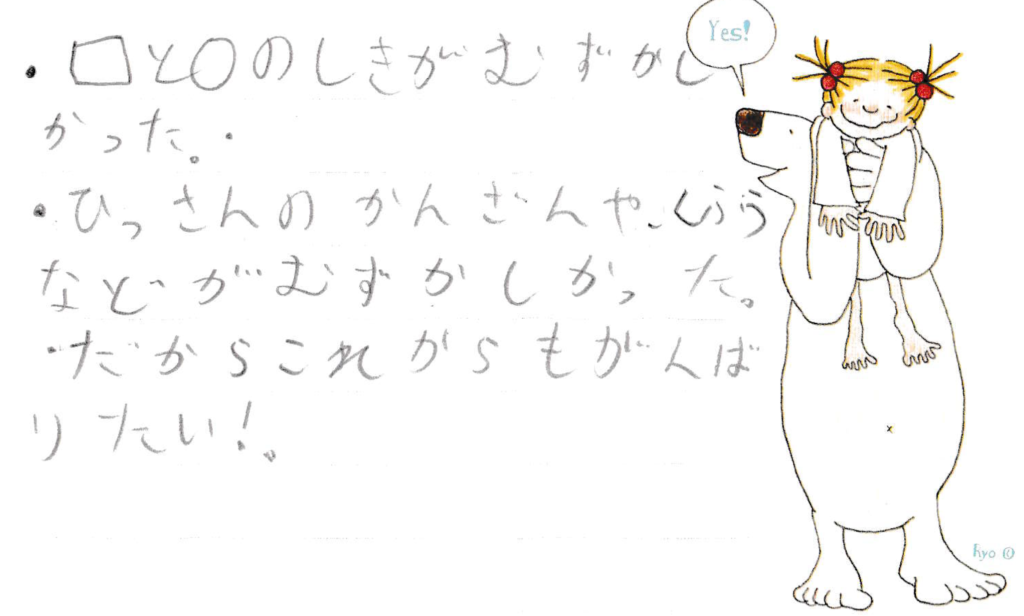 Yes!
・□と○のしきがむずかし
かった。・
・ひっさんのかんざんや、くらう
などがむずかしかった。
・だからこれがらもがんば
りたい!。
hyo ©